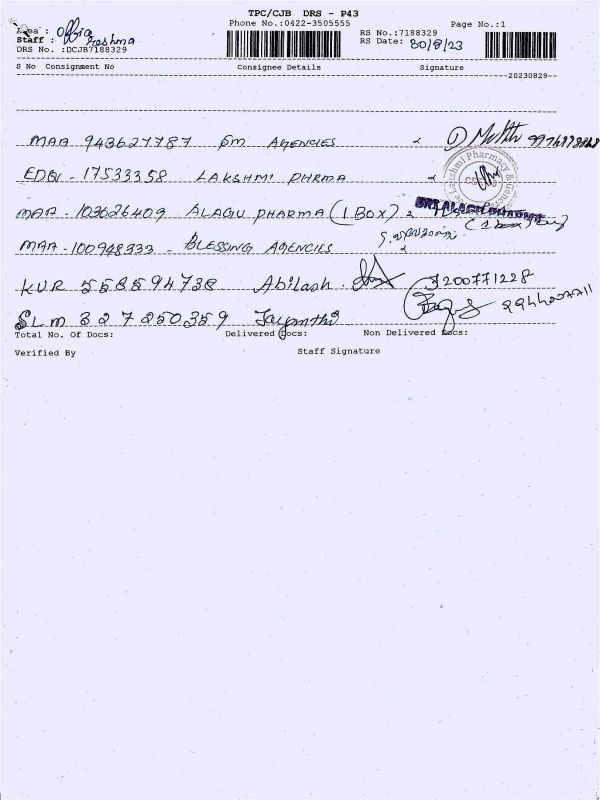 TPC/CJB DRS - P43
Phone No.:0422-3505555
Page No.:1
Area :
Staff : Reshma
DRS No. :DCJB7188329
RS No.:7188329
RS Date: 30/8/23
S No Consignment No Consignee Details Signature
20230829--
MAA 943627787 GM AGENCIES
EDGV - 17533358 LAKSHMI PHRMA
Lakshmi Pharmacy & General
MAA - 103626409 ALAGU PHARMA (1 BOX) 2
SRI ALAGU PHARMA
MAA - 100948333 - BLESSING AGENCIES
KUR 558594738 Abilash 9200771228
SLM 327250359 Jayanthi
Total No. Of Docs: Delivered Docs: Non Delivered Docs:
Verified By Staff Signature